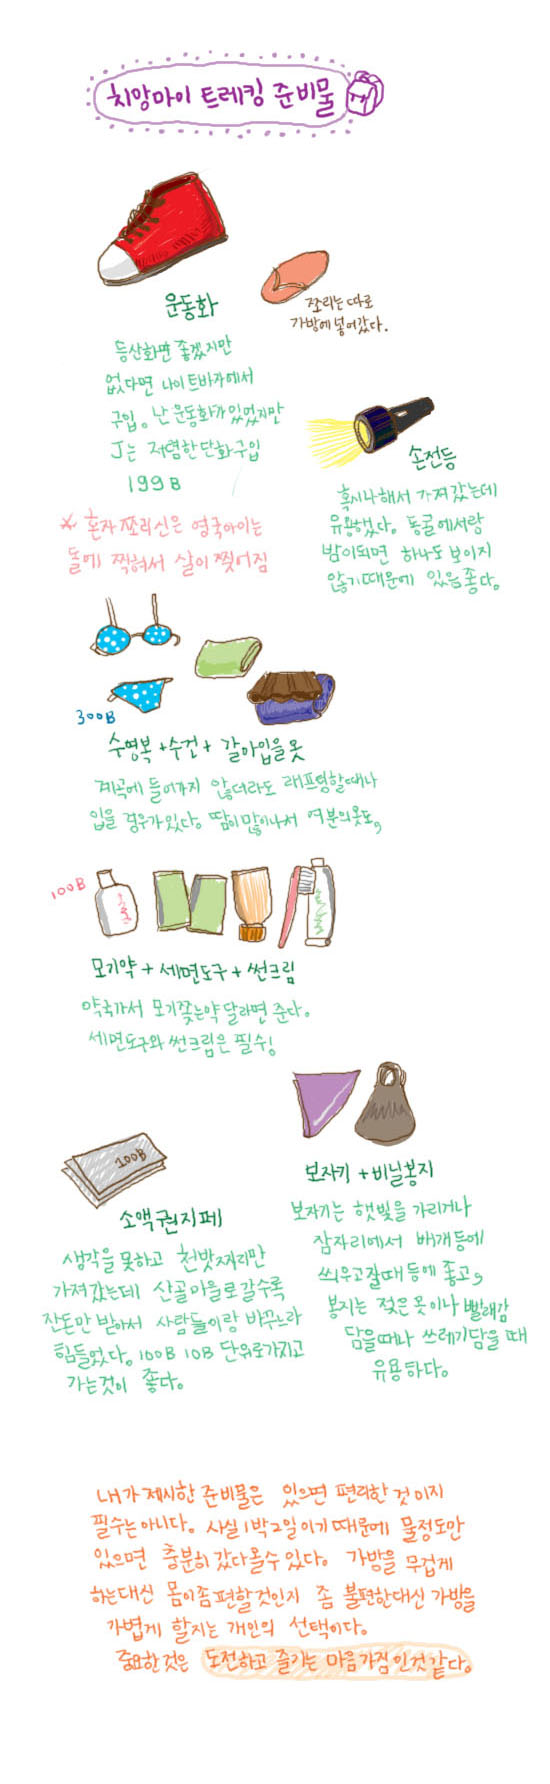 치앙마이 트레킹 준비물
운동화
등산화면 좋겠지만
없다면 나이트바자에서
구입. 난 운동화가 있었지만
J는 저렴한 단화구입
199B
* 혼자 쪼리신은 영국아이는
돌에 찍혀서 살이 찢어짐
쪼리는 따로
가방에 넣어갔다.
손전등
혹시나해서 가져갔는데
유용했다. 동굴에서랑
밤이되면 하나도 보이지
않기때문에 있음좋다.
300B
수영복 + 수건 + 갈아입을 옷
계곡에 들어가지 않더라도 래프팅할때나
입을 경우가있다. 땀이많이나서 여분의옷도,
100B
모기약 + 세면도구 + 썬크림
약국가서 모기쫓는약 달라면 준다.
세면도구와 썬크림은 필수!
100B
소액권지폐
생각을 못하고 천밧짜리만
가져갔는데 산골마을로갈수록
잔돈만 받아서 사람들이랑 바꾸느라
힘들었다. 100B 10B 단위로가지고
가는것이 좋다.
보자기 + 비닐봉지
보자기는 햇빛을 가리거나
잠자리에서 베개등에
씌우고잘때 등에 좋고,
봉지는 젖은옷이나 빨래감
담을때나 쓰레기담을 때
유용하다.
내가 제시한 준비물은 있으면 편리한 것 이지
필수는아니다. 사실 1박2일이기 때문에 물정도만
있으면 충분히 갔다올수 있다. 가방을 무겁게
하는대신 몸이좀편할것인지 좀 불편한대신 가방을
가볍게 할지는 개인의 선택이다.
중요한것은 도전하고 즐기는 마음가짐 인것 같다.